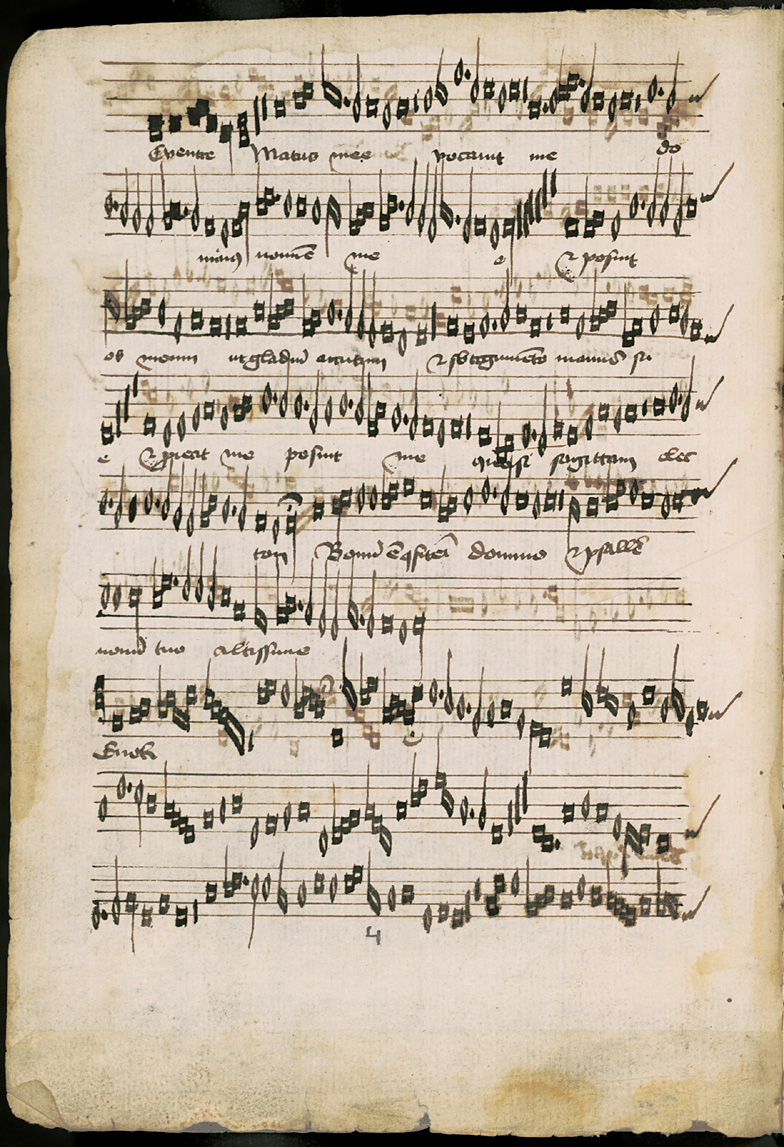 De ventre Matris mee vocavit me do
minus nomine me o et posuit
os meum ut gladiu acutum et sb tegumeto manus su
e et ptexit me posuit me quasi sagittam elec
tam Bonu e cfiteri domino et psalle
nomi tuo altissime
Euou
4